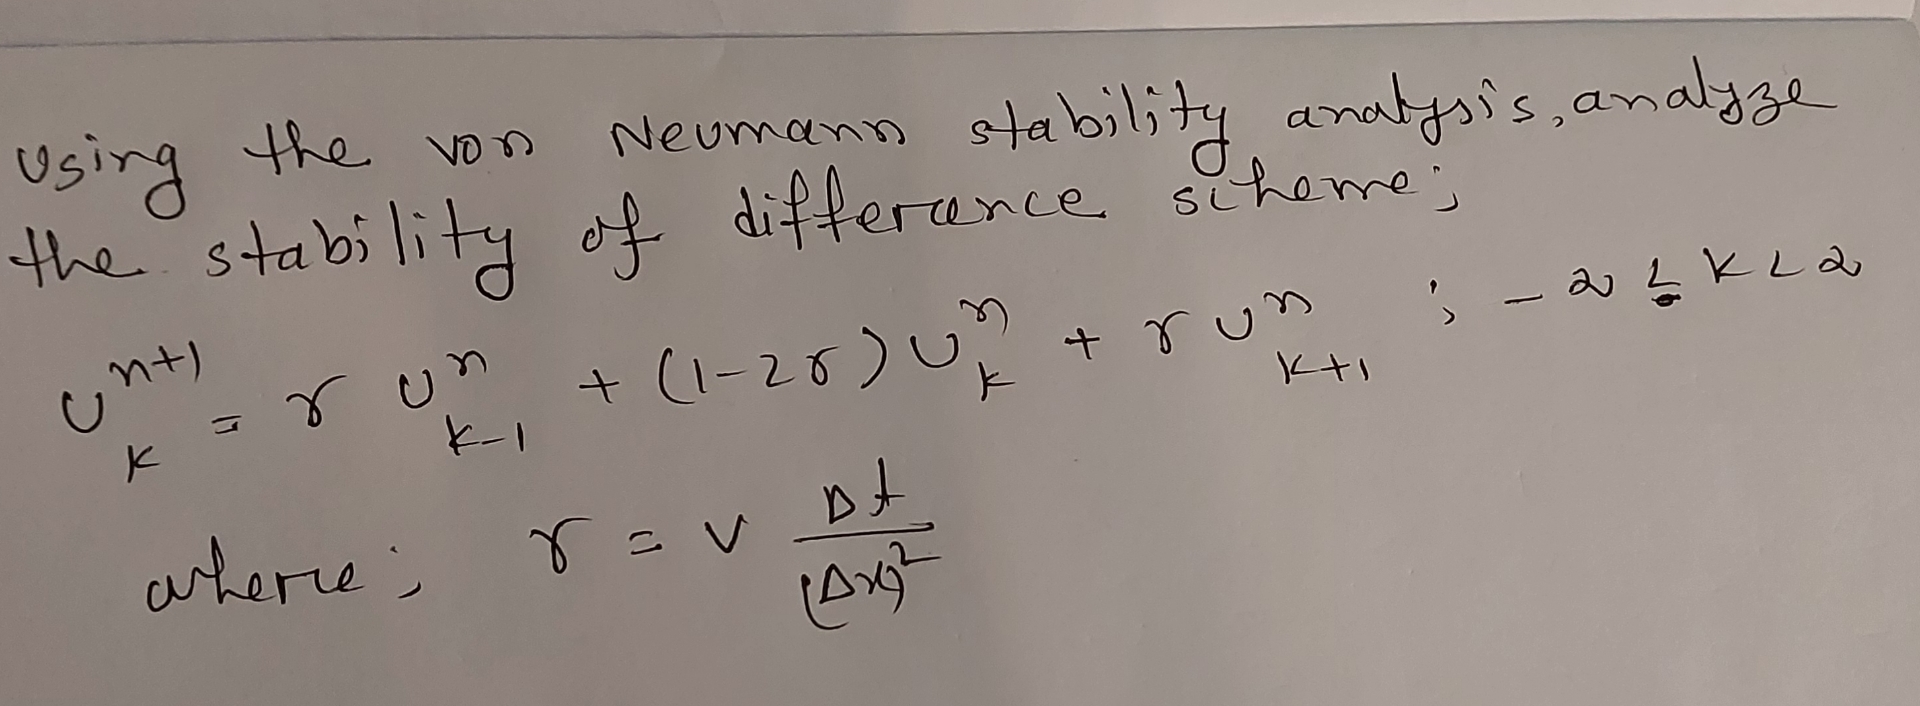 Using the von Neumann stability analysis, analyze
the stability of difference scheme;
u^{n+1}_k = r u^n_{k-1} + (1-2r) u^n_k + r u^n_{k+1} ; -∞ < k < ∞
where; r = ν Δt/(Δx)^2